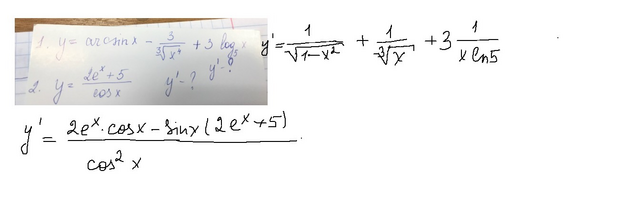 1. y = arcsin x - 3/∛(x⁴) + 3 log₅ x y'-?
y' = 1/√(1-x²) + 1/∛x + 3 1/(x ln5)
2. y = (2eˣ+5)/cos x y'-?
y' = (2eˣ·cosx - sinx(2eˣ+5))/cos² x